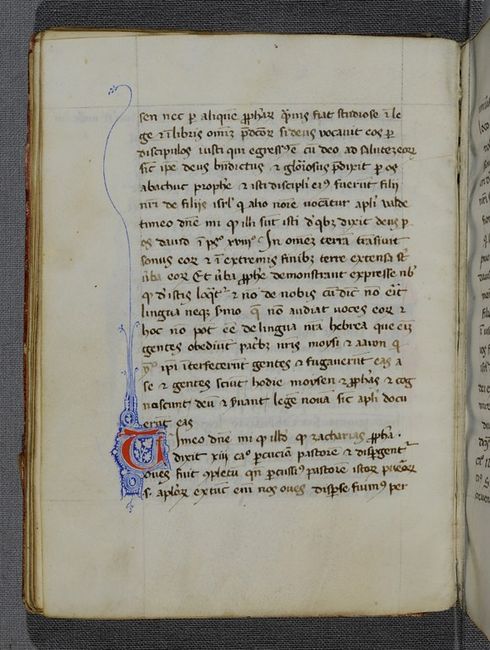 sen nec p alique ꝓph'ar p'mis fiat studiose i le
ge i libris omiz p'dcor si deus vocavit eos p
discipulos iusti qui egress' e cu deo ad salute eor
sic ipe deus bndictus et glorosus p'dixit p os
abachuc prophe et isti discipli ei' fuerut filii
nri de filiis isrl' q alio noie vocatur apli valde
timeo dne mi q illi sut isti d' qbz dixit deus p
os david i ps° xviii° In omez terra exivit
sonus eor et i extremis finibz terre extensa st
v'ba eor Et v'ba ꝓphe demonstrant expresse nb'
q d' istis loqt' et no de nobis cu dic no e'it
lingua neqz s'mo q no audiat voces eor et
hoc no pot ee de lingua nra hebrea que eiz
gentes obediut patbz nris moysi et aaron q
ipi iterfecerut gentes et fugaverut eas a
se et gentes sciut hodie moysen et ꝓph'as et cog
noscunt deu et s'vant lege nova sic apli docu
erut eas
Timeo dne mi q illud q zacharias ꝓpha
dixit xiii ca° p'cuciam pastore et dispgent'
oves fuit opletu qn p'cussim' pastore istor pueror
s. aplor extuc em nos oves disp'se fuim' per